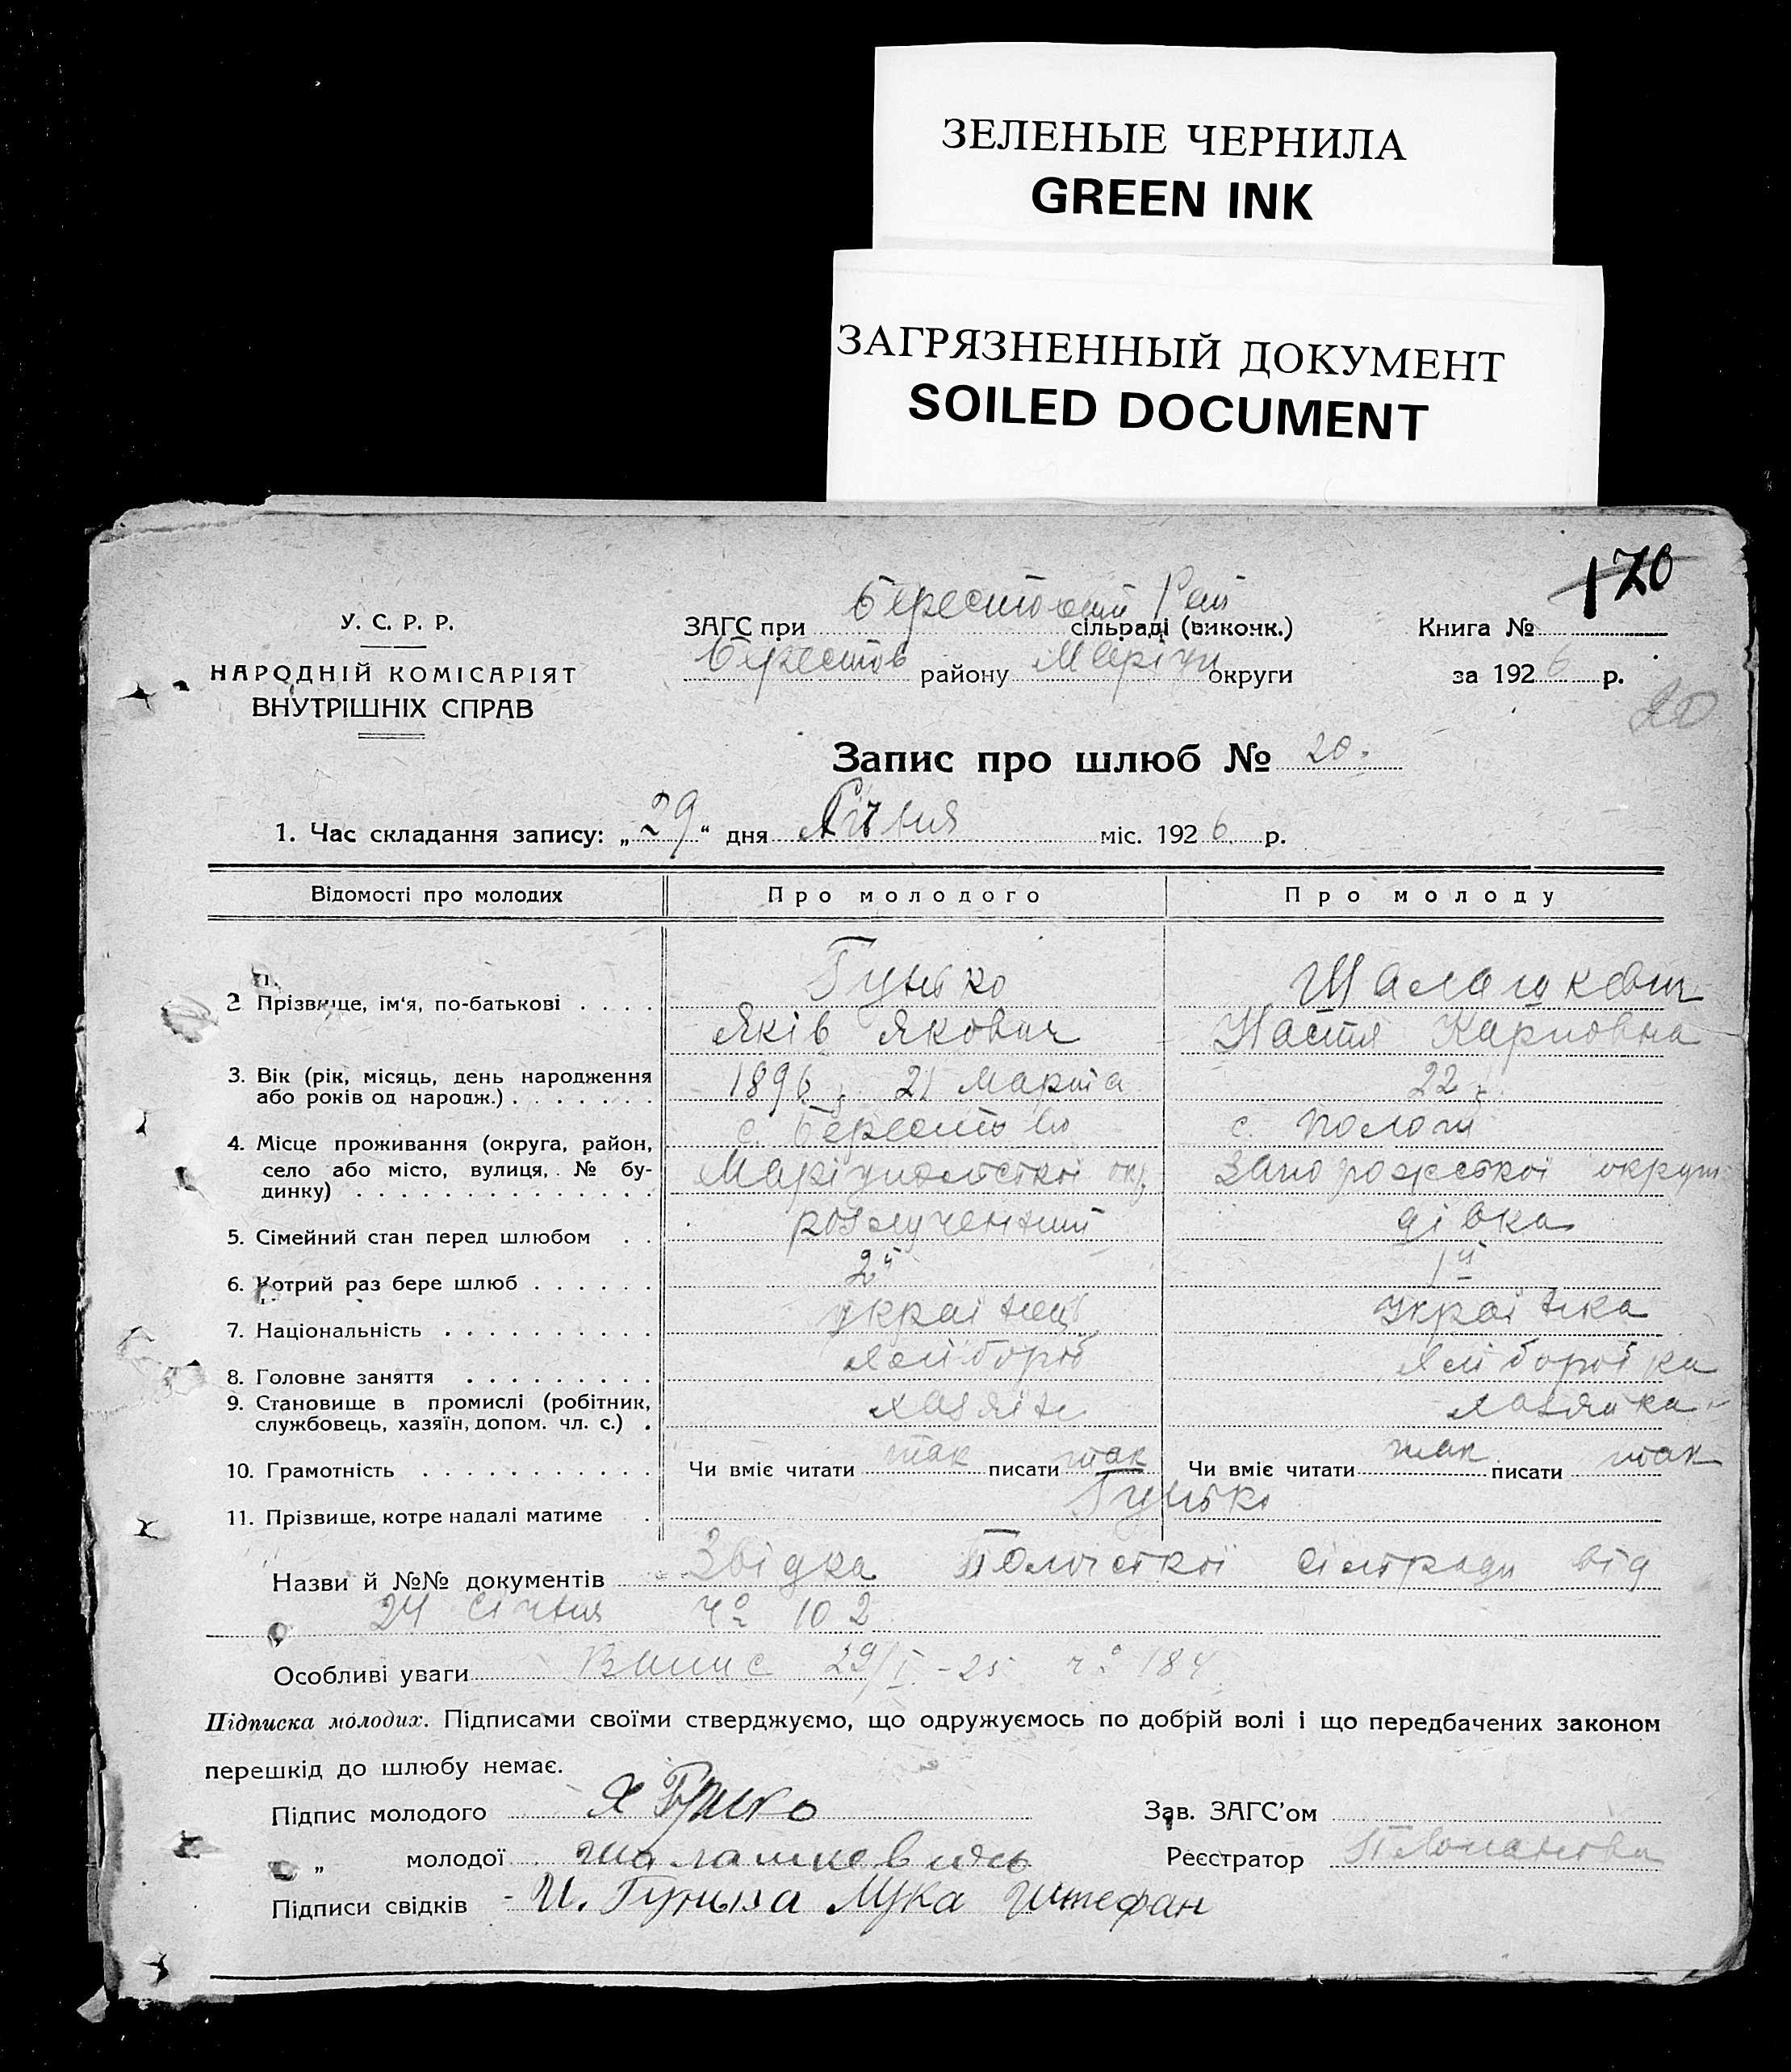 ЗЕЛЕНЫЕ ЧЕРНИЛА
GREEN INK
ЗАГРЯЗНЕННЫЙ ДОКУМЕНТ
SOILED DOCUMENT
170
У. С. Р. Р.
НАРОДНІЙ КОМІСАРІЯТ
ВНУТРІШНІХ СПРАВ
ЗАГС при сільраді (викочк.)
Берестов району Маріуп округи
Книга №
за 1926 р.
20
Запис про шлюб № 20.
1. Час складання запису: „29“ дня Січня міс. 1926 р.
Відомості про молодих Про молодого Про молоду
2 Прізвище, ім‘я, по-батькові Гунько Шалашкевич
Яків Якович Настя Карповна
3. Вік (рік, місяць, день народження або років од народж.) 1896 р. 21 марта 22 р.
4. Місце проживання (округа, район, село або місто, вулиця, № будинку) с. Берестово с. Пологи
Маріупольської окр. Запорожської округи
5. Сімейний стан перед шлюбом розлученний дівка
6. Котрий раз бере шлюб 2й 1й
7. Національність українець українка
8. Головне заняття хлібороб хліборобка
9. Становище в промислі (робітник, службовець, хазяїн, допом. чл. с.) хазяїн хазяйка
10. Грамотність Чи вміє читати так писати так Чи вміє читати так писати так
11. Прізвище, котре надалі матиме Гунько
Назви й №№ документів Звідка Пологської сільради від
24 січня ч° 102
Особливі уваги Випис 29/I-25 ч° 184
Підписка молодих. Підписами своїми стверджуємо, що одружуємось по добрій волі і що передбачених законом
перешкід до шлюбу немає.
Підпис молодого Я Гунько Зав. ЗАГС’ом
„ молодої шалашкевич Реєстратор
Підписи свідків И. Гунька Лука Штефан